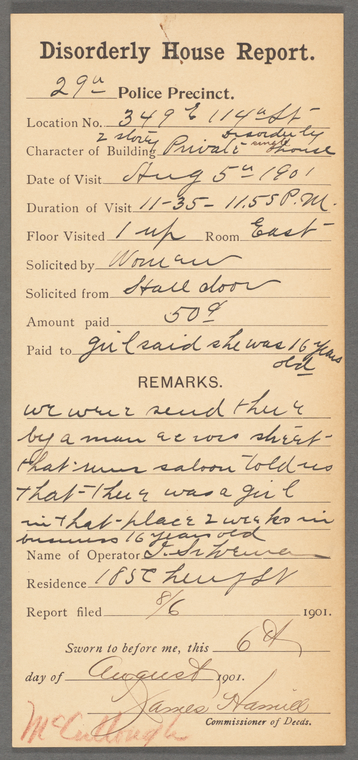 Disorderly House Report.
29th Police Precinct.
Location No. 349 E 114th St
Character of Building 2 story Private single Disorderly house
Date of Visit Aug 5th 1901
Duration of Visit 11-35 - 11.55 P.M.
Floor Visited 1 up Room East
Solicited by Woman
Solicited from Hall door
Amount paid 50¢
Paid to girl said she was 16 years old
REMARKS.
we were send there
by a man across street
that runs saloon told us
that there was a girl
in that place 2 weeks in
business 16 years old
Name of Operator
Residence 185
Report filed 8/6 1901.
Sworn to before me, this 6th
day of August 1901.
James Hamill
Commissioner of Deeds.
McCullough